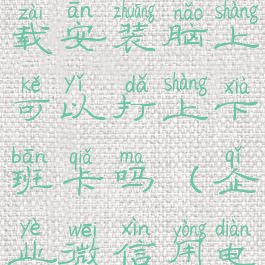 zài ān zhuāng nǎo shàng
载安装脑上
kě yǐ dǎ shàng xià
可以打上下
bān qiǎ ma ( qǐ
班卡吗(企
yè wēi xìn yòng diàn
业微信用电